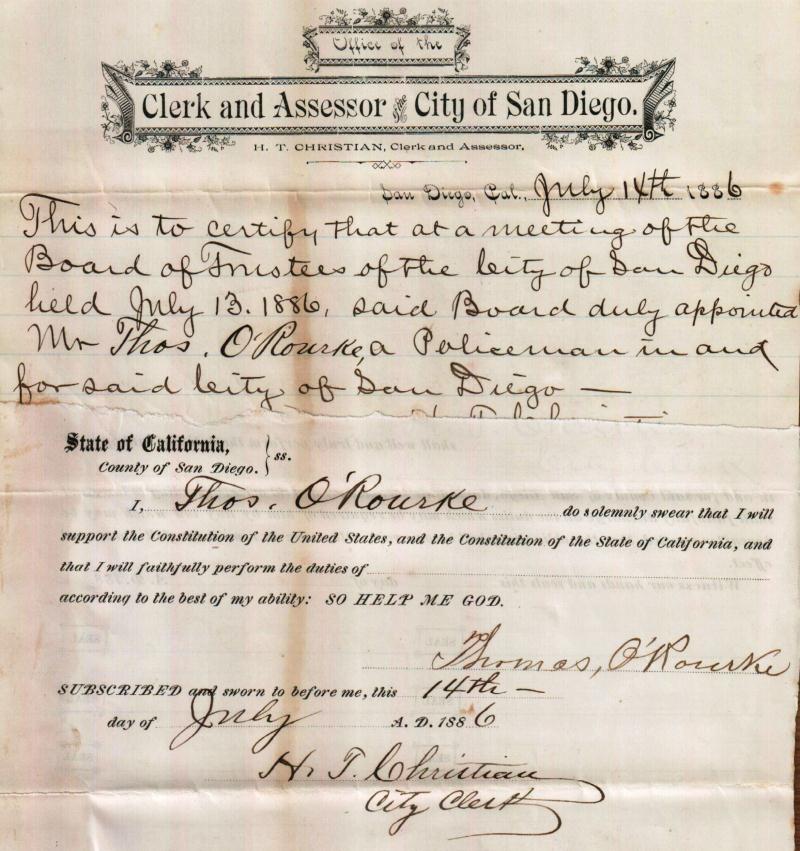 Office of the
Clerk and Assessor of City of San Diego.
H. T. CHRISTIAN, Clerk and Assessor.
San Diego, Cal., July 14th 1886
This is to certify that at a meeting of the
Board of Trustees of the City of San Diego
held July 13. 1886, said Board duly appointed
Mr Thos. O'Rourke, a Policeman in and
for said City of San Diego —
State of California,
County of San Diego. } ss.
I, Thos. O'Rourke do solemnly swear that I will
support the Constitution of the United States, and the Constitution of the State of California, and
that I will faithfully perform the duties of
according to the best of my ability: SO HELP ME GOD.
Thomas, O'Rourke
SUBSCRIBED and sworn to before me, this 14th —
day of July A. D. 1886
H. T. Christian
City Clerk